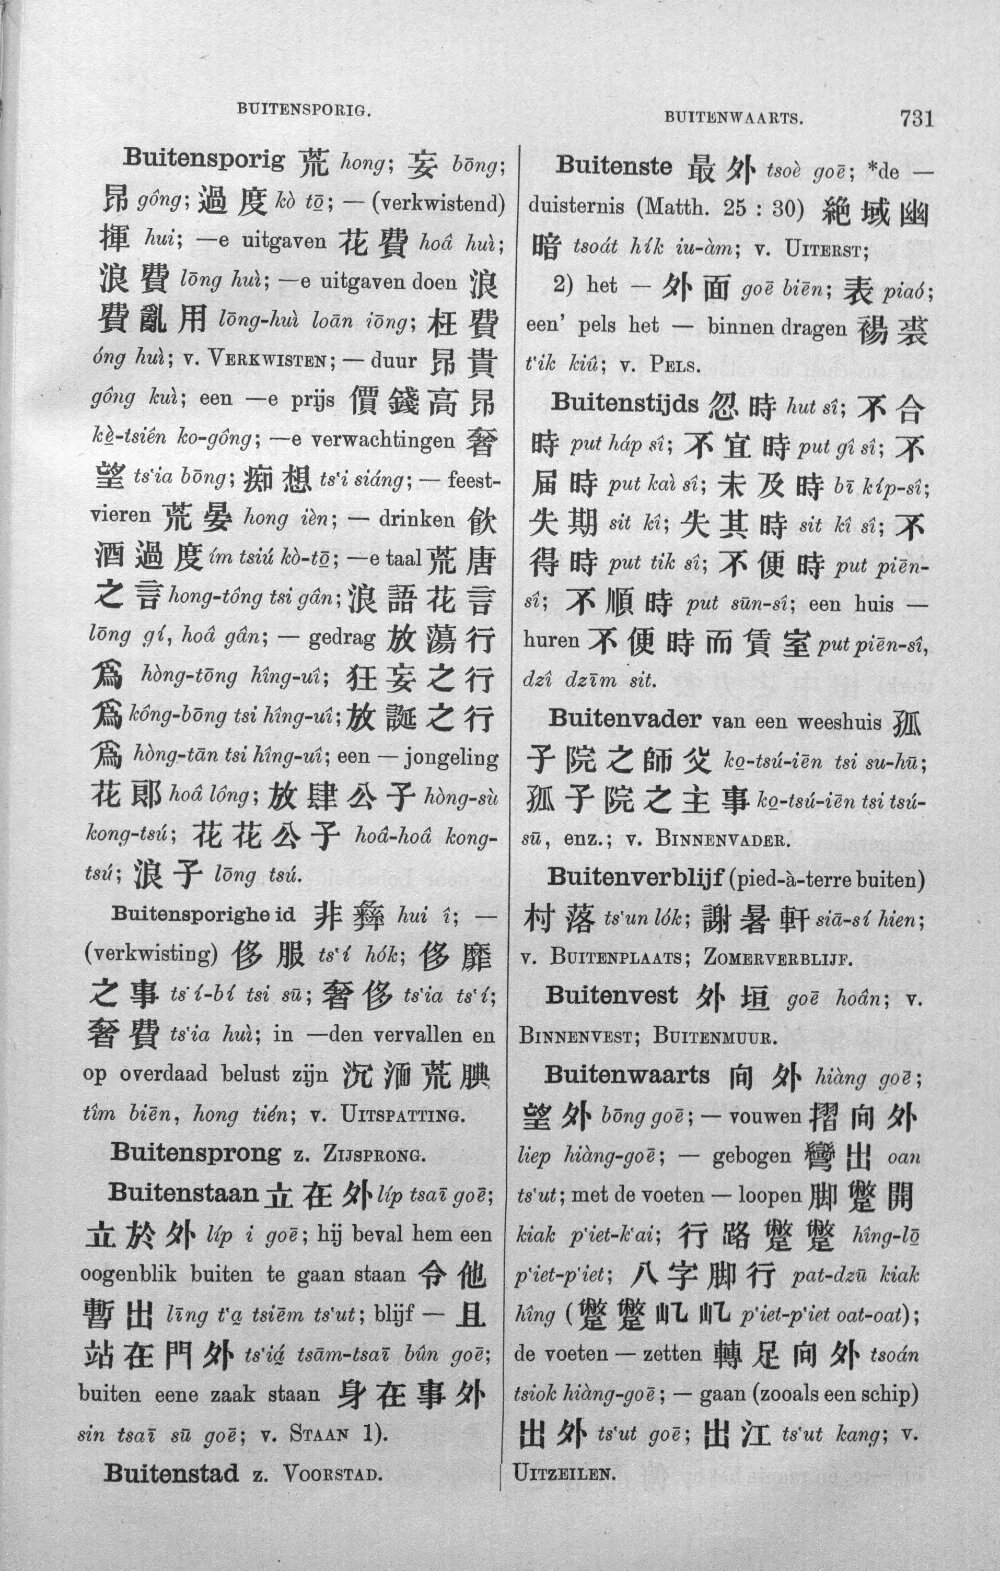 BUITENSPORIG.
BUITENWAARTS. 731
Buitensporig 荒 hong; 妄 bōng;
昂 gông; 過度 kò tō̤; — (verkwistend)
揮 hui; —e uitgaven 花費 hoâ huì;
浪費 lōng huì; —e uitgaven doen 浪
費亂用 lōng-huì loān iōng; 枉費
óng huì; v. VERKWISTEN; — duur 昂貴
gông kuì; een —e prijs 價錢高昂
kè̤-tsiên ko-gông; —e verwachtingen 奢
望 ts‘ia bōng; 痴想 ts‘i siáng; — feest-
vieren 荒晏 hong ièn; — drinken 飲
酒過度 ím tsiú kò-tō̤; —e taal 荒唐
之言 hong-tông tsi gân; 浪語花言
lōng gí, hoâ gân; — gedrag 放蕩行
爲 hòng-tōng hîng-uî; 狂妄之行
爲 kông-bōng tsi hîng-uî; 放誕之行
爲 hòng-tān tsi hîng-uî; een — jongeling
花郞 hoâ lông; 放肆公子 hòng-sù
kong-tsú; 花花公子 hoâ-hoâ kong-
tsú; 浪子 lōng tsú.
Buitensporigheid 非彝 hui î; —
(verkwisting) 侈服 ts‘í hók; 侈靡
之事 ts‘í-bí tsi sū; 奢侈 ts‘ia ts‘í;
奢費 ts‘ia huì; in —den vervallen en
op overdaad belust zijn 沉湎荒腆
tîm biēn, hong tién; v. UITSPATTING.
Buitensprong z. ZIJSPRONG.
Buitenstaan 立在外 líp tsaī goē;
立於外 líp i goē; hij beval hem een
oogenblik buiten te gaan staan 令他
暫出 līng t‘a̤ tsiēm ts‘ut; blijf — 且
站在門外 ts‘iá̤ tsām-tsaī bûn goē;
buiten eene zaak staan 身在事外
sin tsaī sū goē; v. STAAN 1).
Buitenstad z. VOORSTAD.
Buitenste 最外 tsoè goē; *de —
duisternis (Matth. 25 : 30) 絶域幽
暗 tsoát hík iu-àm; v. UITERST;
2) het — 外面 goē biēn; 表 piaó;
een’ pels het — binnen dragen 裼裘
t‘ik kiû; v. PELS.
Buitenstijds 忽時 hut sî; 不合
時 put háp sî; 不宜時 put gî sî; 不
届時 put kaì sî; 未及時 bī kíp-sî;
失期 sit kî; 失其時 sit kî sî; 不
得時 put tik sî; 不便時 put piēn-
sî; 不順時 put sūn-sî; een huis —
huren 不便時而賃室 put piēn-sî,
dzî dzīm sit.
Buitenvader van een weeshuis 孤
子院之師父 ko̤-tsú-iēn tsi su-hū;
孤子院之主事 ko̤-tsú-iēn tsi tsú-
sū, enz.; v. BINNENVADER.
Buitenverblijf (pied-à-terre buiten)
村落 ts‘un lók; 謝暑軒 siā-sí hien;
v. BUITENPLAATS; ZOMERVERBLIJF.
Buitenvest 外垣 goē hoân; v.
BINNENVEST; BUITENMUUR.
Buitenwaarts 向外 hiàng goē;
望外 bōng goē; — vouwen 摺向外
liep hiàng-goē; — gebogen 彎出 oan
ts‘ut; met de voeten — loopen 脚蹩開
kiak p‘iet-k‘ai; 行路蹩蹩 hîng-lō̤
p‘iet-p‘iet; 八字脚行 pat-dzū kiak
hîng (蹩蹩 p‘iet-p‘iet oat-oat);
de voeten — zetten 轉足向外 tsoán
tsiok hiàng-goē; — gaan (zooals een schip)
出外 ts‘ut goē; 出江 ts‘ut kang; v.
UITZEILEN.